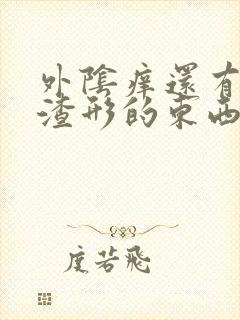 外陰痒還有
渣形的東西
度若飛